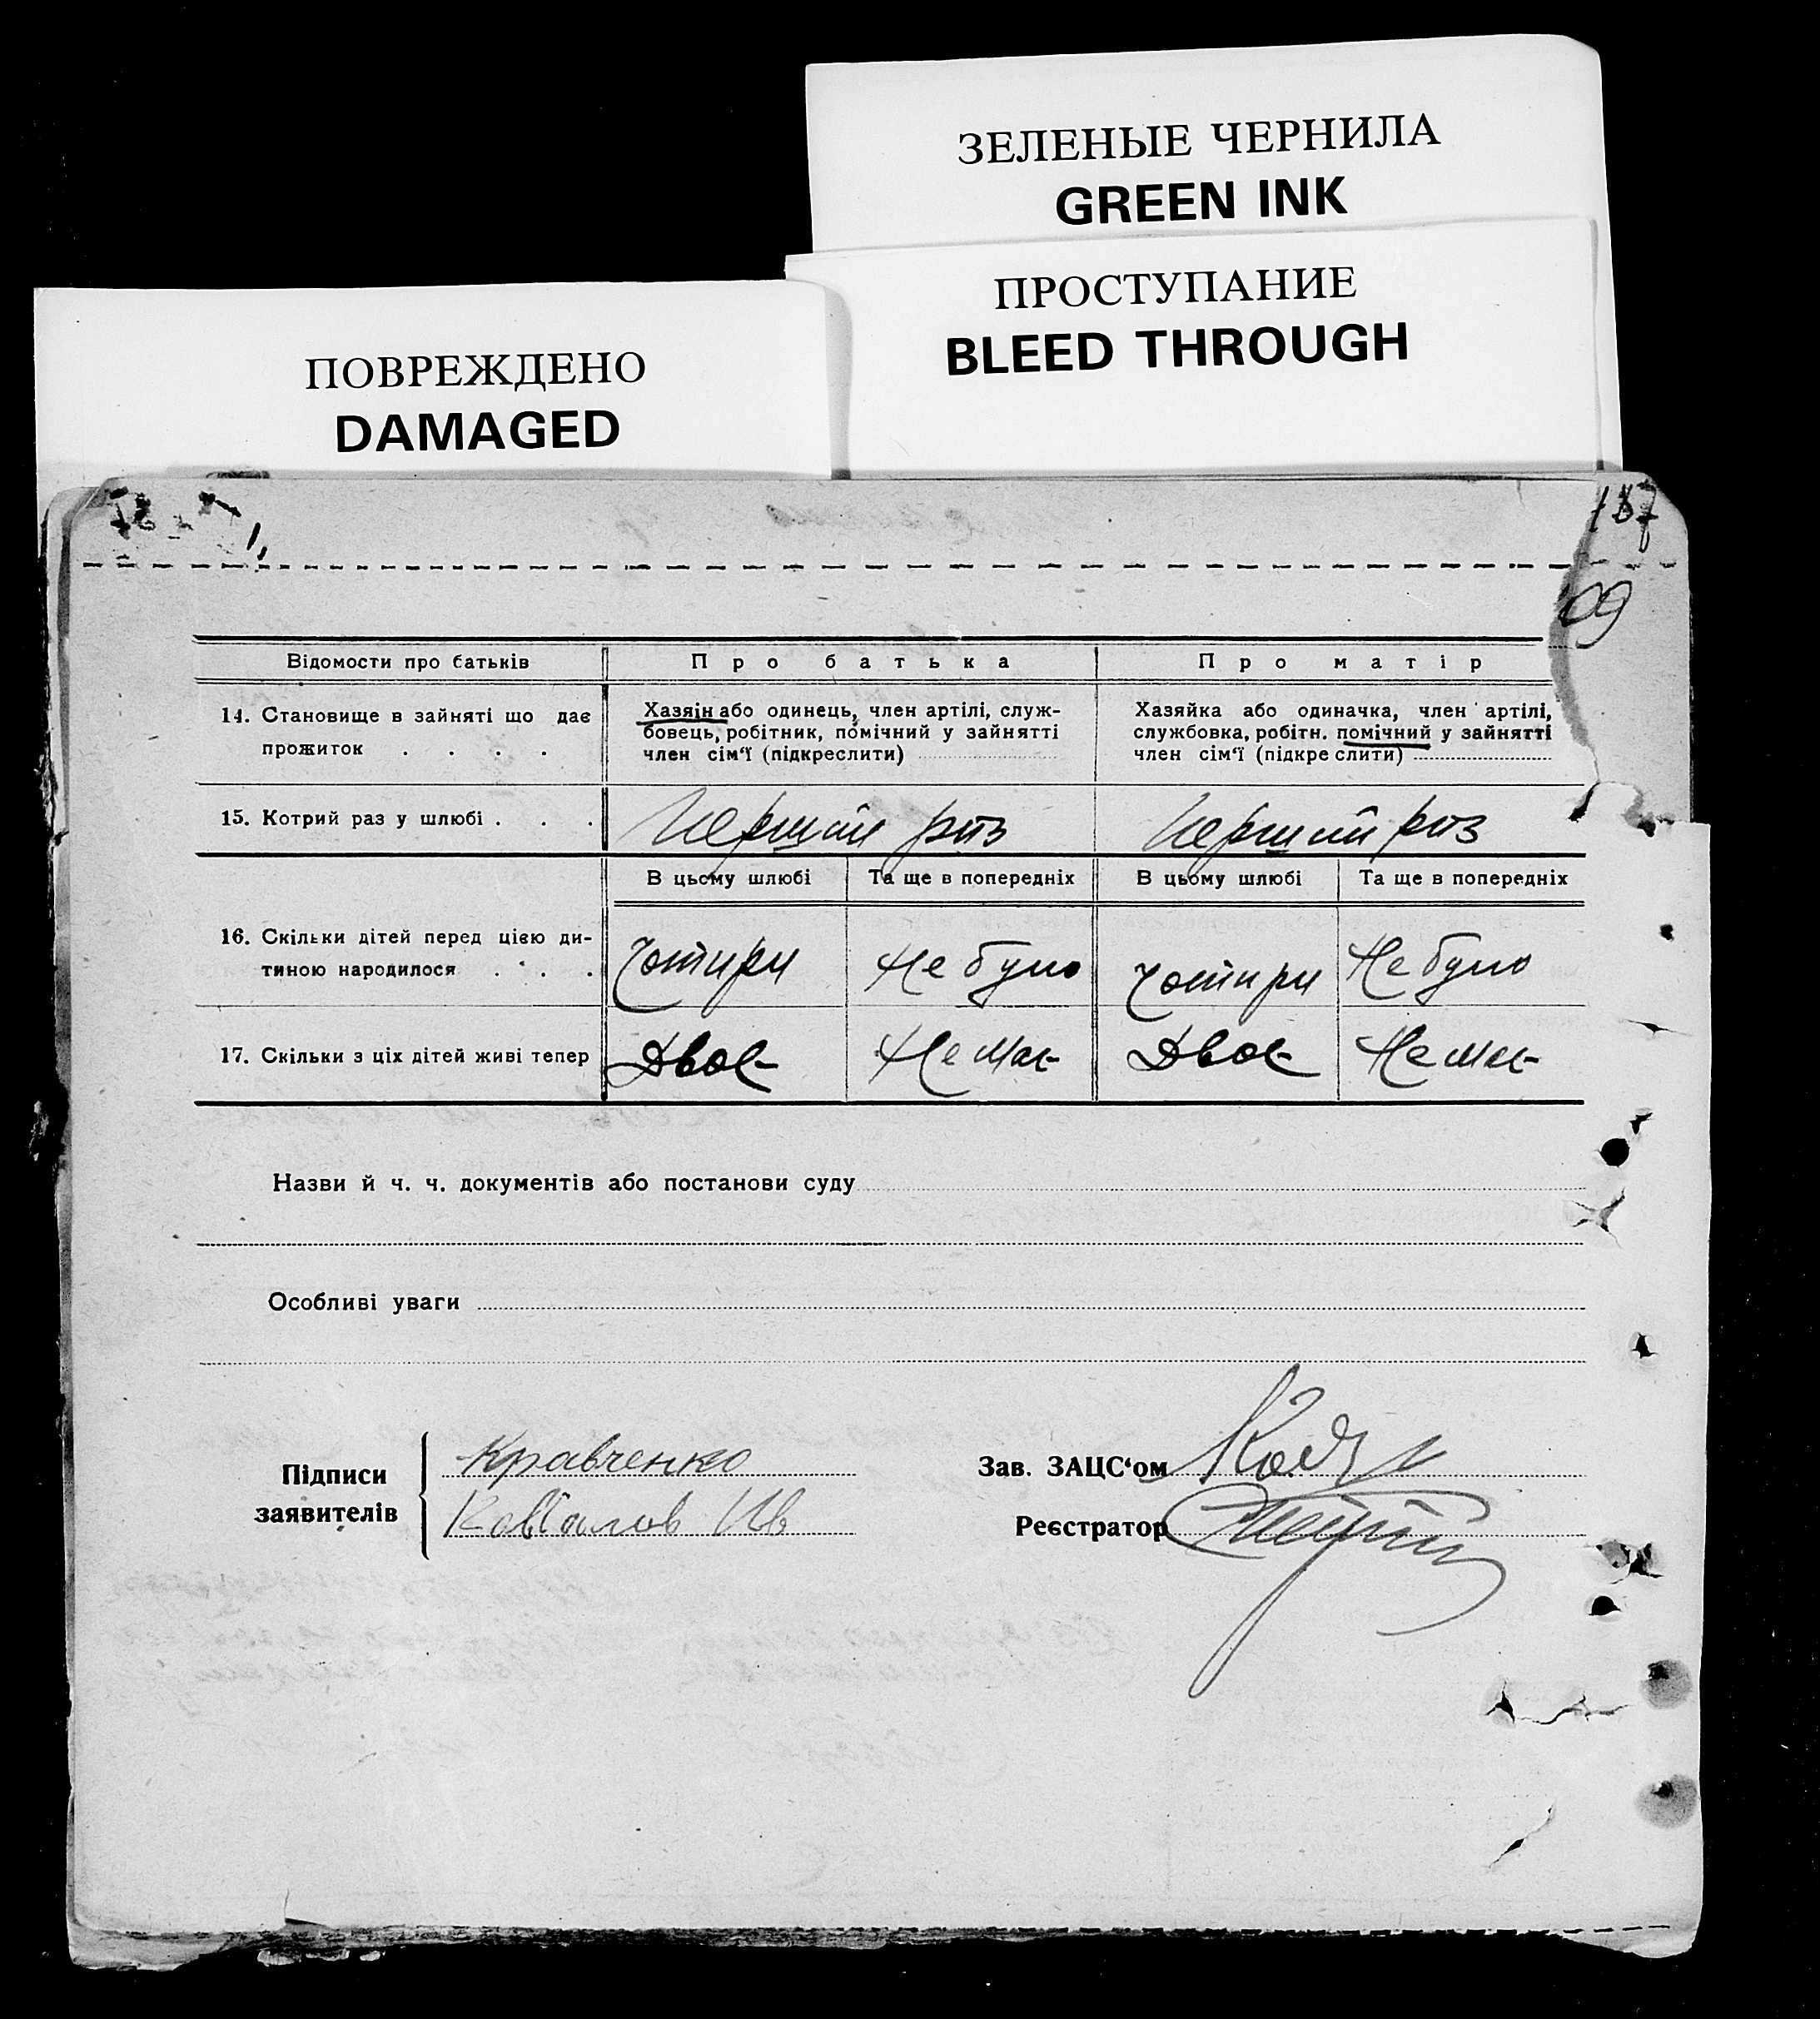 ЗЕЛЕНЫЕ ЧЕРНИЛА
GREEN INK
ПРОСТУПАНИЕ
BLEED THROUGH
ПОВРЕЖДЕНО
DAMAGED
187
09
Відомости про батьків
Про батька
Про матір
14. Становище в зайняті що дає
прожиток . . . .
Хазяїн або одинець, член артілі, служ-
бовець, робітник, помічний у зайнятті
член сім‘ї (підкреслити)
Хазяйка або одиначка, член артілі,
службовка, робітн. помічний у зайнятті
член сім‘ї (підкреслити)
15. Котрий раз у шлюбі . . .
Перший раз
Перший раз
В цьому шлюбі
Та ще в попередніх
В цьому шлюбі
Та ще в попередніх
16. Скільки дітей перед цією ди-
тиною народилося . . .
Чотири
Не було
Чотири
Не було
17. Скільки з ціх дітей живі тепер
Двоє
Немає
Двоє
Немає
Назви й ч. ч. документів або постанови суду
Особливі уваги
Підписи
заявителів
Кравченко
Зав. ЗАЦС‘ом
Реєстратор